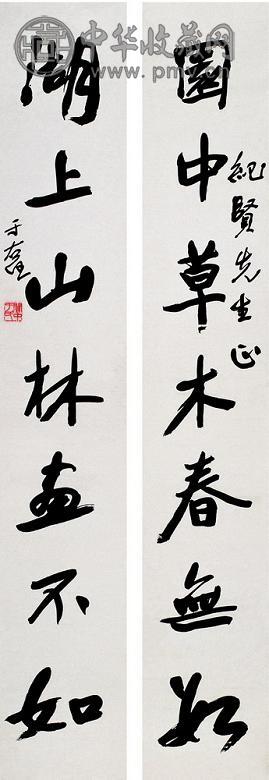 中华收藏网
www.pmyv.cn
園中草木春無數
紀賢先生正
湖上山林畫不如
于右任